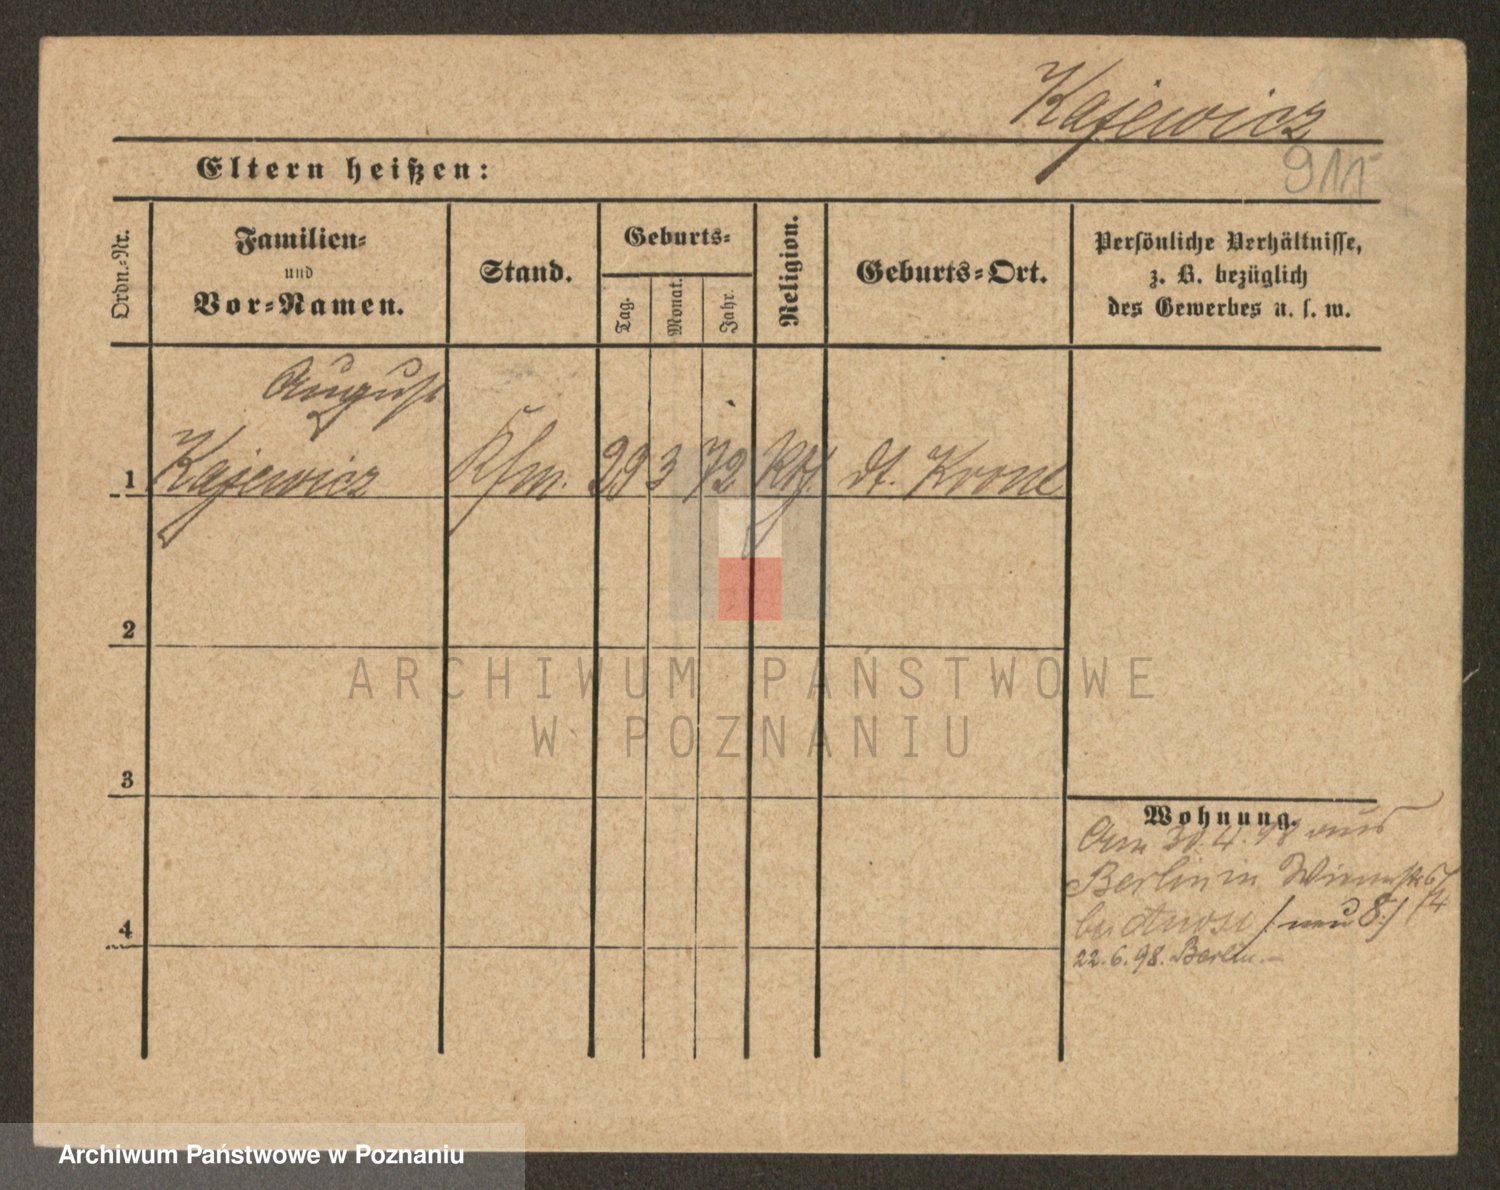 Kajewicz
911
Eltern heißen:
Ordn.=Nr.
Familien=
und
Vor=Namen.
Stand.
Geburts=
Tag.
Monat.
Jahr.
Religion.
Geburts=Ort.
Persönliche Verhältnisse,
z. B. bezüglich
des Gewerbes u. s. w.
August
1 Kajewicz Kfm. 29 3 72 Kth. dt. Krone
2
3
4
Wohnung.
Am 30.4.98 aus
Berlin in
bei /neu 8./
22.6.98. Berlin.–
ARCHIWUM PAŃSTWOWE
W POZNANIU
Archiwum Państwowe w Poznaniu